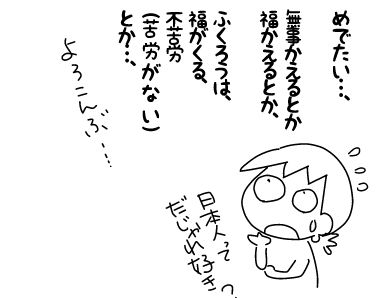 めでたい…、
無事かえるとか
福かえるとか、
ふくろうは、
福がくる、
不苦労
(苦労がない)
とか…、
よろこんぶ…
日本人って
だじゃれ好き?